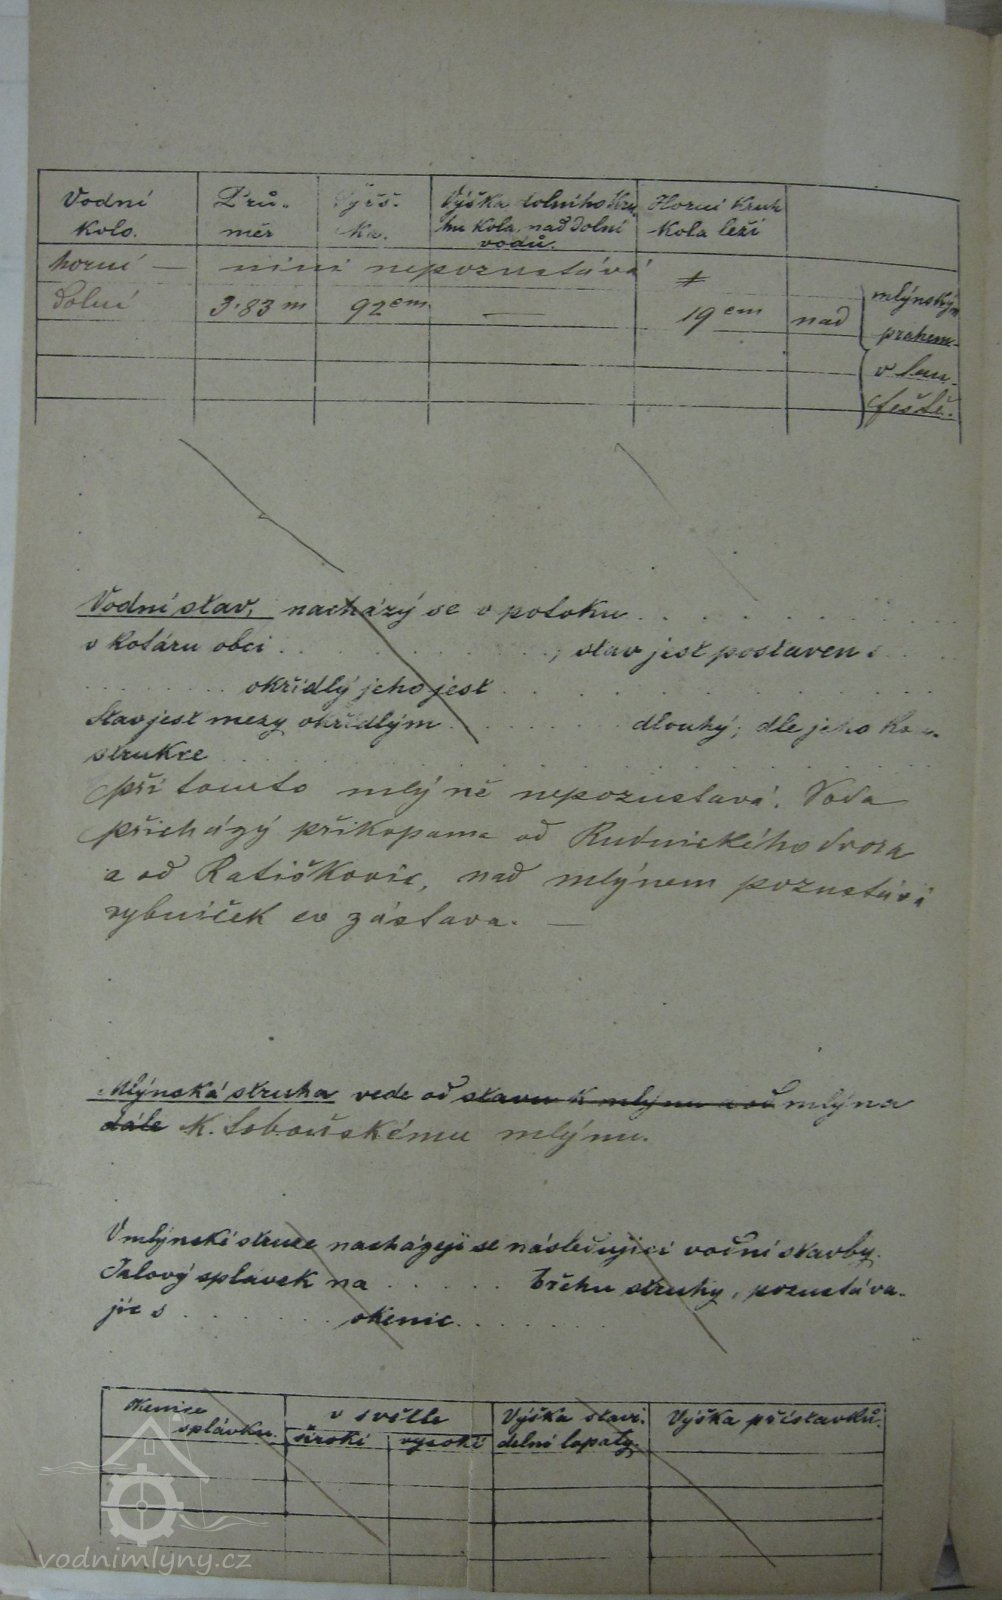 Vodní Prů- Výš- Výška dolního kru- Horní kruh
kolo. měr ka. hu kola, nad dolní kola leží
vodů.
horní — nini nepozustává
dolní 3·83 m 92 cm — 19 cm nad mlýnským
prahem.
v lau-
feště.
Vodní stav, nacházý se v potoku . . . . . . .
v kotáru obci . . . . . . . . ; stav jest postaven s . . .
. . . . . . . okřídlý jeho jest . . . . . . . . . .
Stav jest mezy okřídlým . . . . . . dlouhý; dle jeho kon-
strukce . . . . . . . . . . . . . . . . .
při tomto mlýně nepozustavá. Voda
přicházý příkopama od Rudnického dvora
a od Ratiškovic, nad mlýnem pozustává
rybníček co zástava. —
Mlýnská struha vede od stavu k mlýnu a od mlýna
dále k. Sobouškému mlýnu.
V mlýnské struze nacházejí se následující vodní stavby.
Jalový splávek na . . . . . . břehu struhy, pozustáva-
jíc s . . . . . . . okenic. . . . . . .
okenice v světle Výška stavi- Výška přístavků.
splávku. široké vysoké delní lopaty.
vodnimlyny.cz